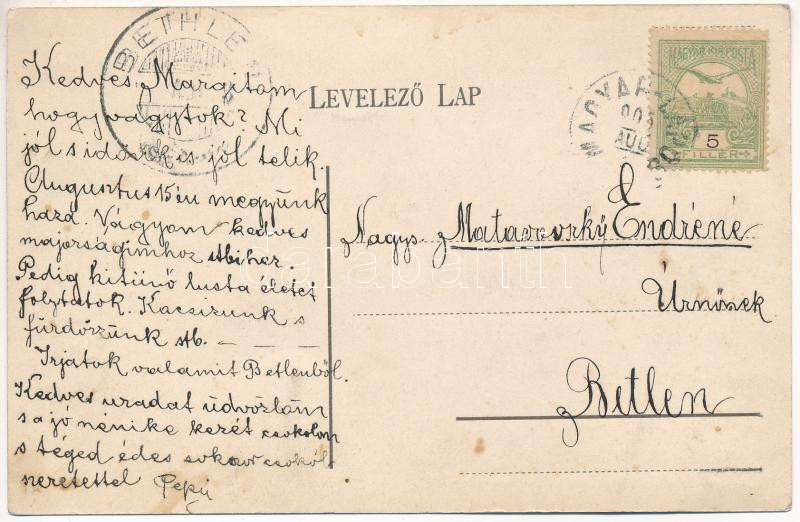 Kedves Margitam
hogy vagytok? Mi
jól s időnk is jól telik.
Augusztus 15én megyünk
haza. Vágyom kedves
majorságimhoz stbihez.
Pedig kitünő lusta életet
folytatok. Kacsizunk s
fürdőzzünk stb. — — —
Irjatok valamit Betlenből.
Kedves uradat üdvözlöm
s a jó nénike kezét csokolom
s téged édes sokszor csokol
szeretettel Pepi
BETHLEN
LEVELEZŐ LAP
MAGYAR KIR. POSTA
5
FILLÉR
MAGYAR
AUG
Nagys. Matavovszky Endréné
Úrnőnek
Betlen
darabanth